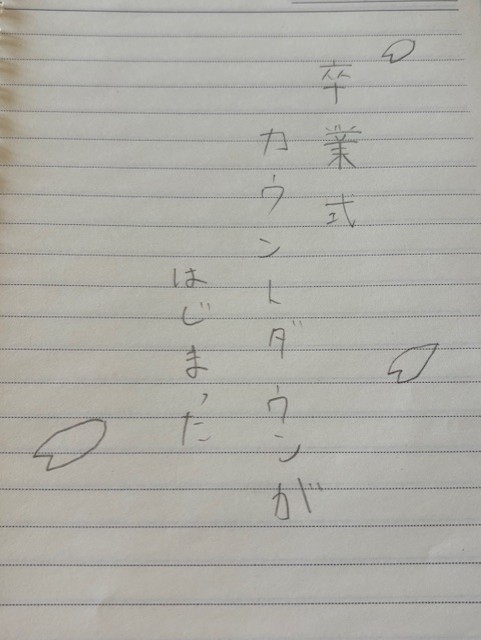 卒業式
カウントダウンが
はじまった